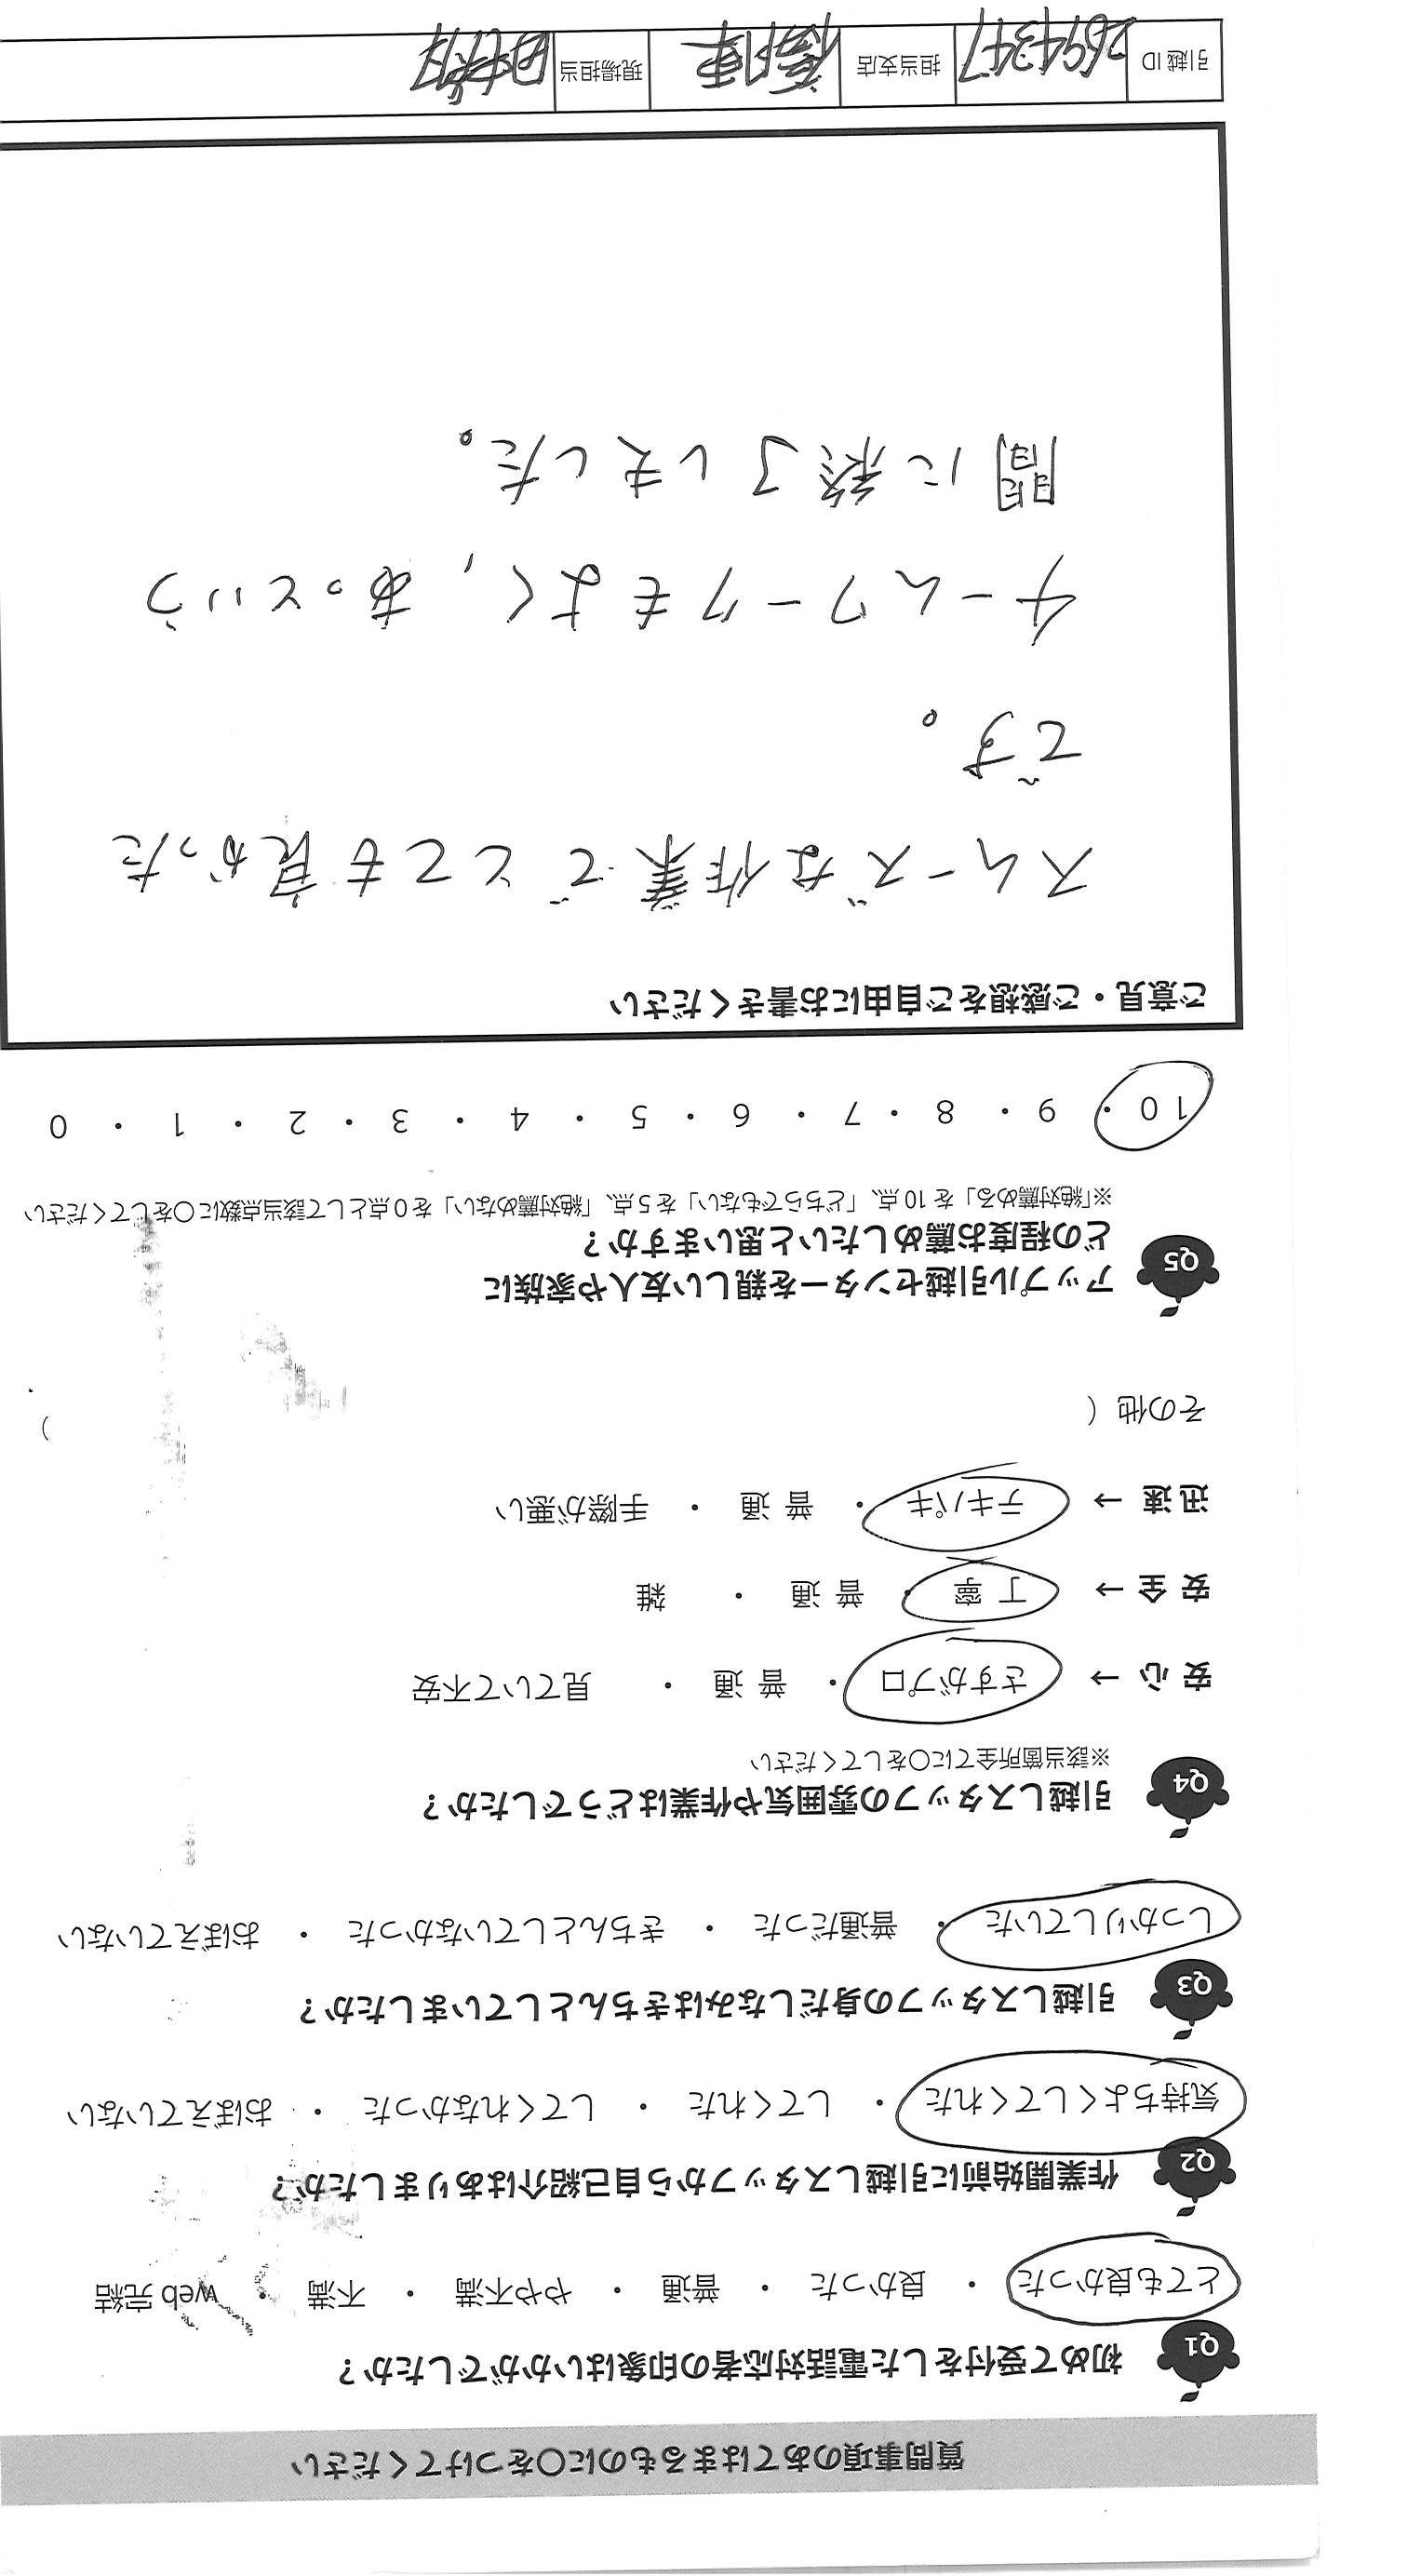 質問事項のあてはまるものに○をつけてください
Q1 初めて受付をした電話対応者の印象はいかがでしたか？
とても良かった ・ 良かった ・ 普通 ・ やや不満 ・ 不満 ・ web 完結
Q2 作業開始前に引越しスタッフから自己紹介はありましたか？
気持ちよくしてくれた ・ してくれた ・ してくれなかった ・ おぼえていない
Q3 引越しスタッフの身だしなみはきちんとしていましたか？
しっかりしていた ・ 普通だった ・ きちんとしていなかった ・ おぼえていない
Q4 引越しスタッフの雰囲気や作業はどうでしたか？
※該当箇所全てに○をしてください
安 心 → さすがプロ ・ 普 通 ・ 見ていて不安
安 全 → 丁 寧 ・ 普 通 ・ 雑
迅 速 → テキパキ ・ 普 通 ・ 手際が悪い
その他 （ ）
Q5 アップル引越センターを親しい友人や家族に
どの程度お薦めしたいと思いますか？
※「絶対薦める」を 10 点、「どちらでもない」を 5 点、「絶対薦めない」を 0 点として該当点数に○をしてください
10 ・ 9 ・ 8 ・ 7 ・ 6 ・ 5 ・ 4 ・ 3 ・ 2 ・ 1 ・ 0
ご意見・ご感想をご自由にお書きください
スムーズな作業でとても良かった
です。
チームワークもよく, あっという
間に終了しました。
引越 ID 2694347 担当支店 現場担当